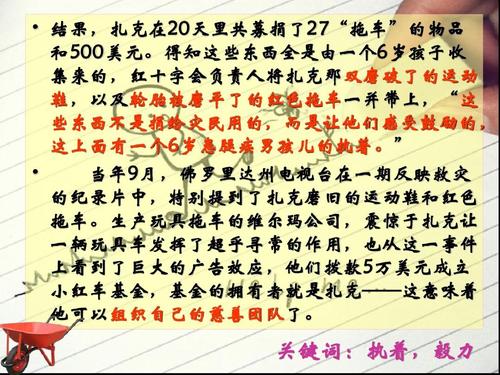 • 结果，扎克在20天里共募捐了27“拖车”的物品
和500美元。得知这些东西全是由一个6岁孩子收
集来的，红十字会负责人将扎克那双磨破了的运动
鞋，以及轮胎被磨平了的红色拖车一并带上，“这
些东西不是捐给灾民用的，而是让他们感受鼓励的，
这上面有一个6岁患腿疾男孩儿的执着。”
• 当年9月，佛罗里达州电视台在一期反映救灾
的纪录片中，特别提到了扎克磨旧的运动鞋和红色
拖车。生产玩具拖车的维尔玛公司，震惊于扎克让
一辆玩具车发挥了超乎寻常的作用，也从这一事件
上看到了巨大的广告效应，他们拨款5万美元成立
小红车基金，基金的拥有者就是扎克——这意味着
他可以组织自己的慈善团队了。
关键词：执着，毅力